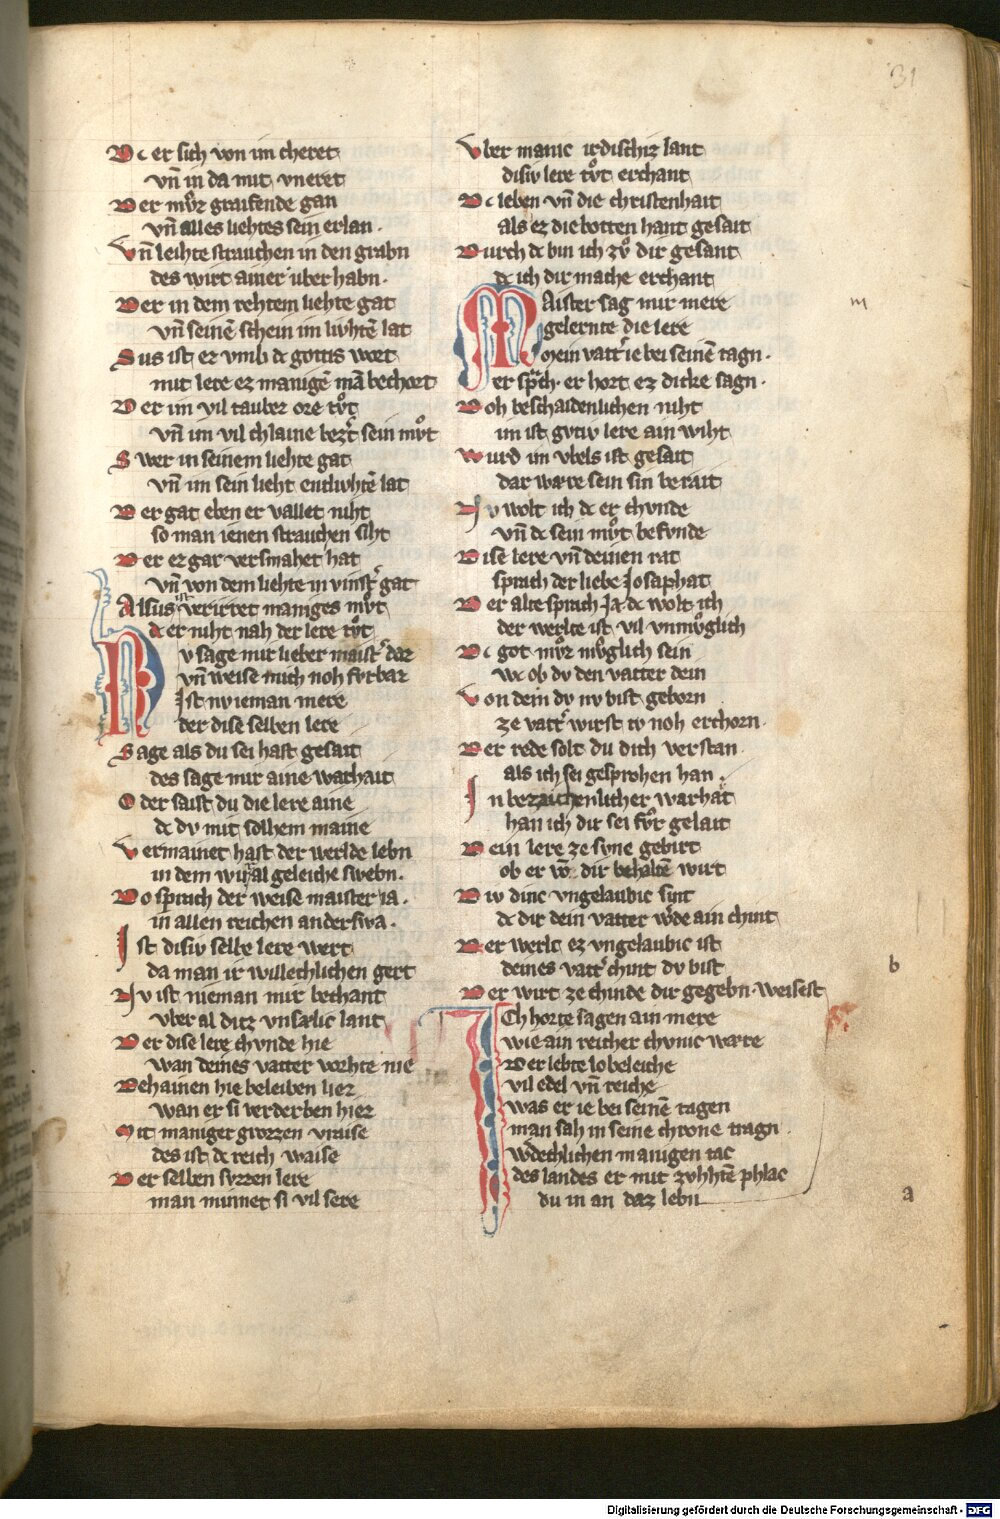 31
Dc er sich von im cheret
vn̄ in da mit vneret
Der mvͦz graifende gan
vn̄ alles liehtes sein erlan.
Vn̄ leihte strauchen in den grabn
des wirt ainer vber habn.
Der in dem rehtem liehte gat
vn̄ seinē schein im livhtē lat
Sus ist er vmb dc gottis wort
mit lere ez manigē mā bechort
Der im vil tauber ore tvͦt
vn̄ im vil chlaine bezt̓ sein mvͦt
Swer in seinem liehte gat
vn̄ im sein lieht entlivhtē lat
Der gat eben er vallet niht
so man ienen strauchen siht
Der ez gar versmahet hat
vn̄ von dem liehte in vinst̓ gat
Alsus ist verirret maniges mvͦt
dc er niht nah der lere tvͦt
Nv sage mir lieber maist̓ dar
vn̄ weise mich noh fvrbar
Ist nv ieman mere
der dise selben lere
Sage als du sei hast gesait
des sage mir aine warhait
Oder saist du die lere aine
dc dv mit solhem maine
Vermainet hast der werlde lebn
in dem wir al geleiche swebn.
Do sprach der weise maister ia.
in allen reichen anderswa.
Ist disiv selbe lere wert
da man ir willechlichen gert
Nv ist nieman mir bechant
vber al ditz vnsælic lant
Der dise lere chvnde hie
wan deines vatter vorhte nie
Dehainen hie beleiben liez
wan er si verderben hiez
Mit maniger grozzen vraise
des ist dc reich waise
Der selben svzzen lere
man minnet si vil sere
Vber manic irdischiz lant
disiv lere tvͦt erchant
Dc leben vn̄ die christenhait
als ez die botten hant gesait
Durch dc bin ich zvͦ dir gesant
dc ich dir mache erchant
Maister sag mir mere
gelernte die lere
Mein vatt̓ ie bei seinē tagn.
er sprach. er hort ez dicke sagn.
Doh beschaidenlichen niht
im ist gvtiv lere ain wiht
Wurd im vbels ist gesait
dar wære sein sin berait
Nv wolt ich dc er chvnde
vn̄ dc sein mvͦt befvnde
Dise lere vn̄ deinen rat
sprach der liebe Josaphat
Der alte sprach Ja dc wolt ich
der werlte ist vil vnmvͦglich
Dc got mvͦz mvglich sein
wc ob dv den vatter dein
Von dem dv nv bist geborn
ze vatt̓ wirst tv noh erchorn.
Der rede solt du dich verstan.
als ich sei gesprohen han.
In bezaichenlicher warhait
han ich dir sei fvͦr gelait
Dein lere ze svne gebirt
ob er vō dir behaltē wirt
Div dinc vngelaubic sint
dc dir dein vatter wͦde ain chint
Der werlt ez vngelaubic ist
deines vatt̓ chint dv bist
Der wirt ze chinde dir gegebn. weisest
du in an daz lebn
Ich horte sagen ain mere
wie ain reicher chvnic wære
Der lebte lobeleiche
vil edel vn̄ reiche
was er ie bei seinē tagen
man sah in seine chrone tragn.
wͦdechlichen manigen tac
des landes er mit zvhhtē phlac
m
b
a
Digitalisierung gefördert durch die Deutsche Forschungsgemeinschaft - DFG